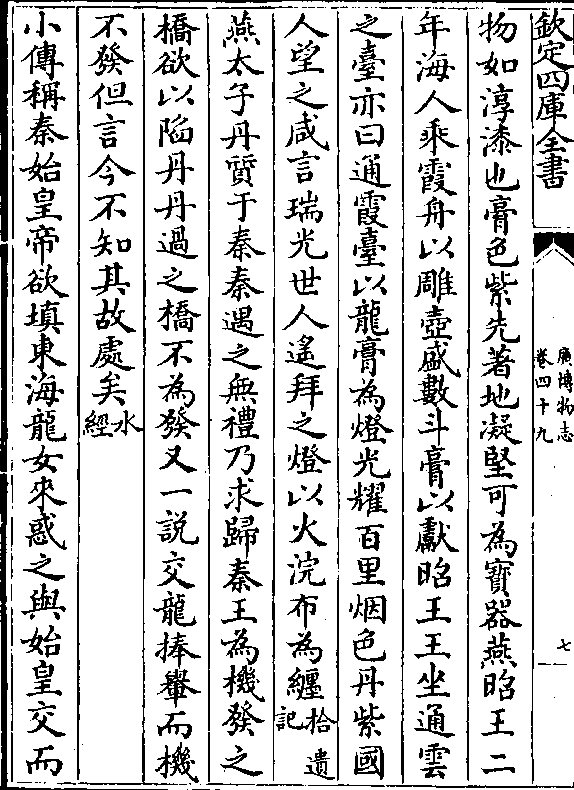 欽定四庫全書
廣博物志
卷四十九
七
物如淳漆也膏色紫光著地凝堅可為寶器燕昭王二
年海人乘霞舟以雕壺盛數斗膏以獻昭王王坐通雲
之臺亦曰通霞臺以龍膏為燈光耀百里烟色丹紫國
人望之咸言瑞光世人遙拜之燈以火浣布為纏拾遺記
燕太子丹質于秦秦遇之無禮乃求歸秦王為機發之
橋欲以陷丹丹過之橋不為發又一説交龍捧轝而機
不發但言今不知其故處矣水經
小傳稱秦始皇帝欲填東海龍女來惑之與始皇交而